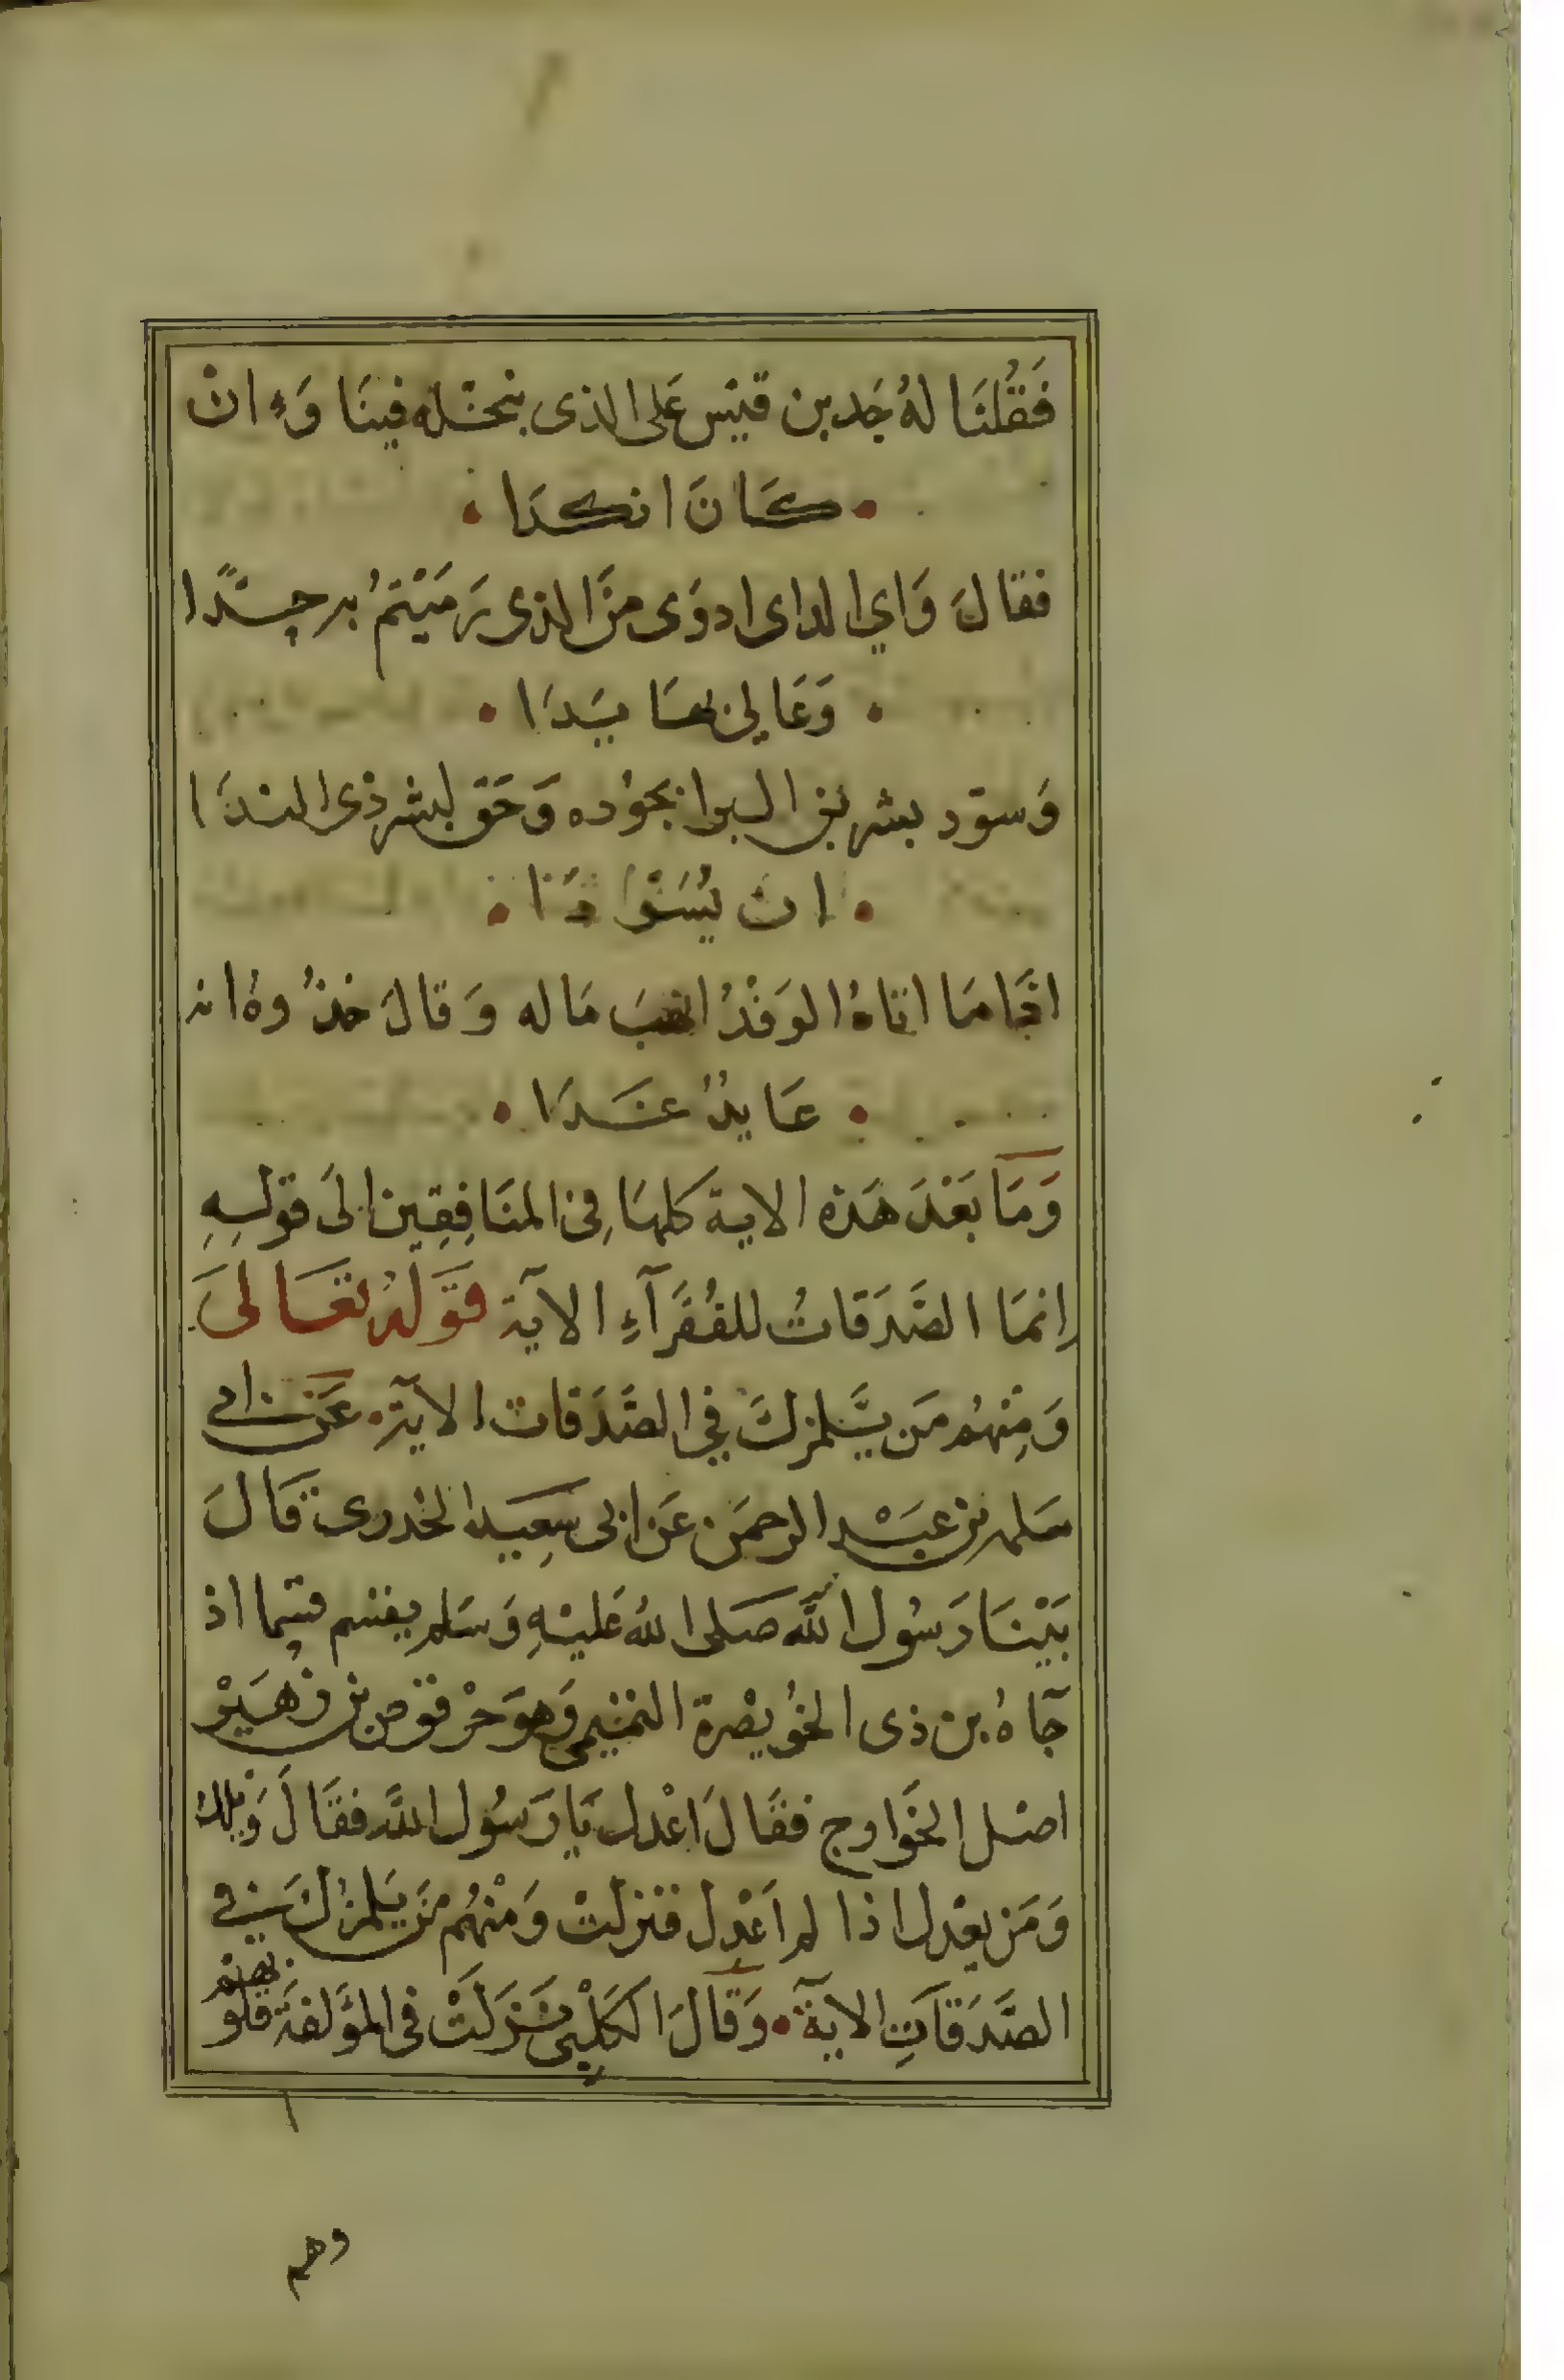 فَقُلنَا لهُ جَد بن قيْس عَلى الذى بنحْله فينَا وَءِ انْ
كَانَ انكدَا
فقالَ وَاي الداى ادوَى منَ الذى رَمَيْتمُ به جدًا
وَعَالىٰ بهَا يَدَا
وَسوّد بشر بنِ البرا بجوُده وَحَق لبشر ذى الندَا
ان يُسَوْدَا
اذَا مَا اتاهُ الوَفْدُ انهبَ مَاله وَقالَ خذُوهُ انه
عَايدٌ غَدَا
وَمَا بَعْدَ هَذه الاية كلهَا فِى المنَافِقِين الىَ قولِهِ
إنمَا الصَّدَقاتُ للفُقَرَآءِ الآية قوَلهُ تعَالىَ
وَمِنْهُم مَن يَّلمزكَ فِي الصَّدَقات الآية عَن ابى
سَلمه بن عبَبْد الرحمَن عَن ابى سَعِيد الخدرى قالَ
بَيْنَا رَسُول اللّه صَلى اللهُ عَليْهِ وَسَلم يقسم قسِما اذ
جَآهُ بن ذى الخُويصْرة التميمى وَهوَ حرْقوص بن زهَيْر
اصْل الخَوارج فقَالَ اعْدل يَا رَسُول اللَّه فقَالَ وَيْلك
وَمَن يعْدل اذا لم اَعْدل فنزلتْ وَمْنهُم مَن يَلمزُكَ فى
الصَّدَقاتِ الآية وَقالَ الكَلْبِى نَزَلَتْ فى المؤَلفَة قلو
بهم
وهم